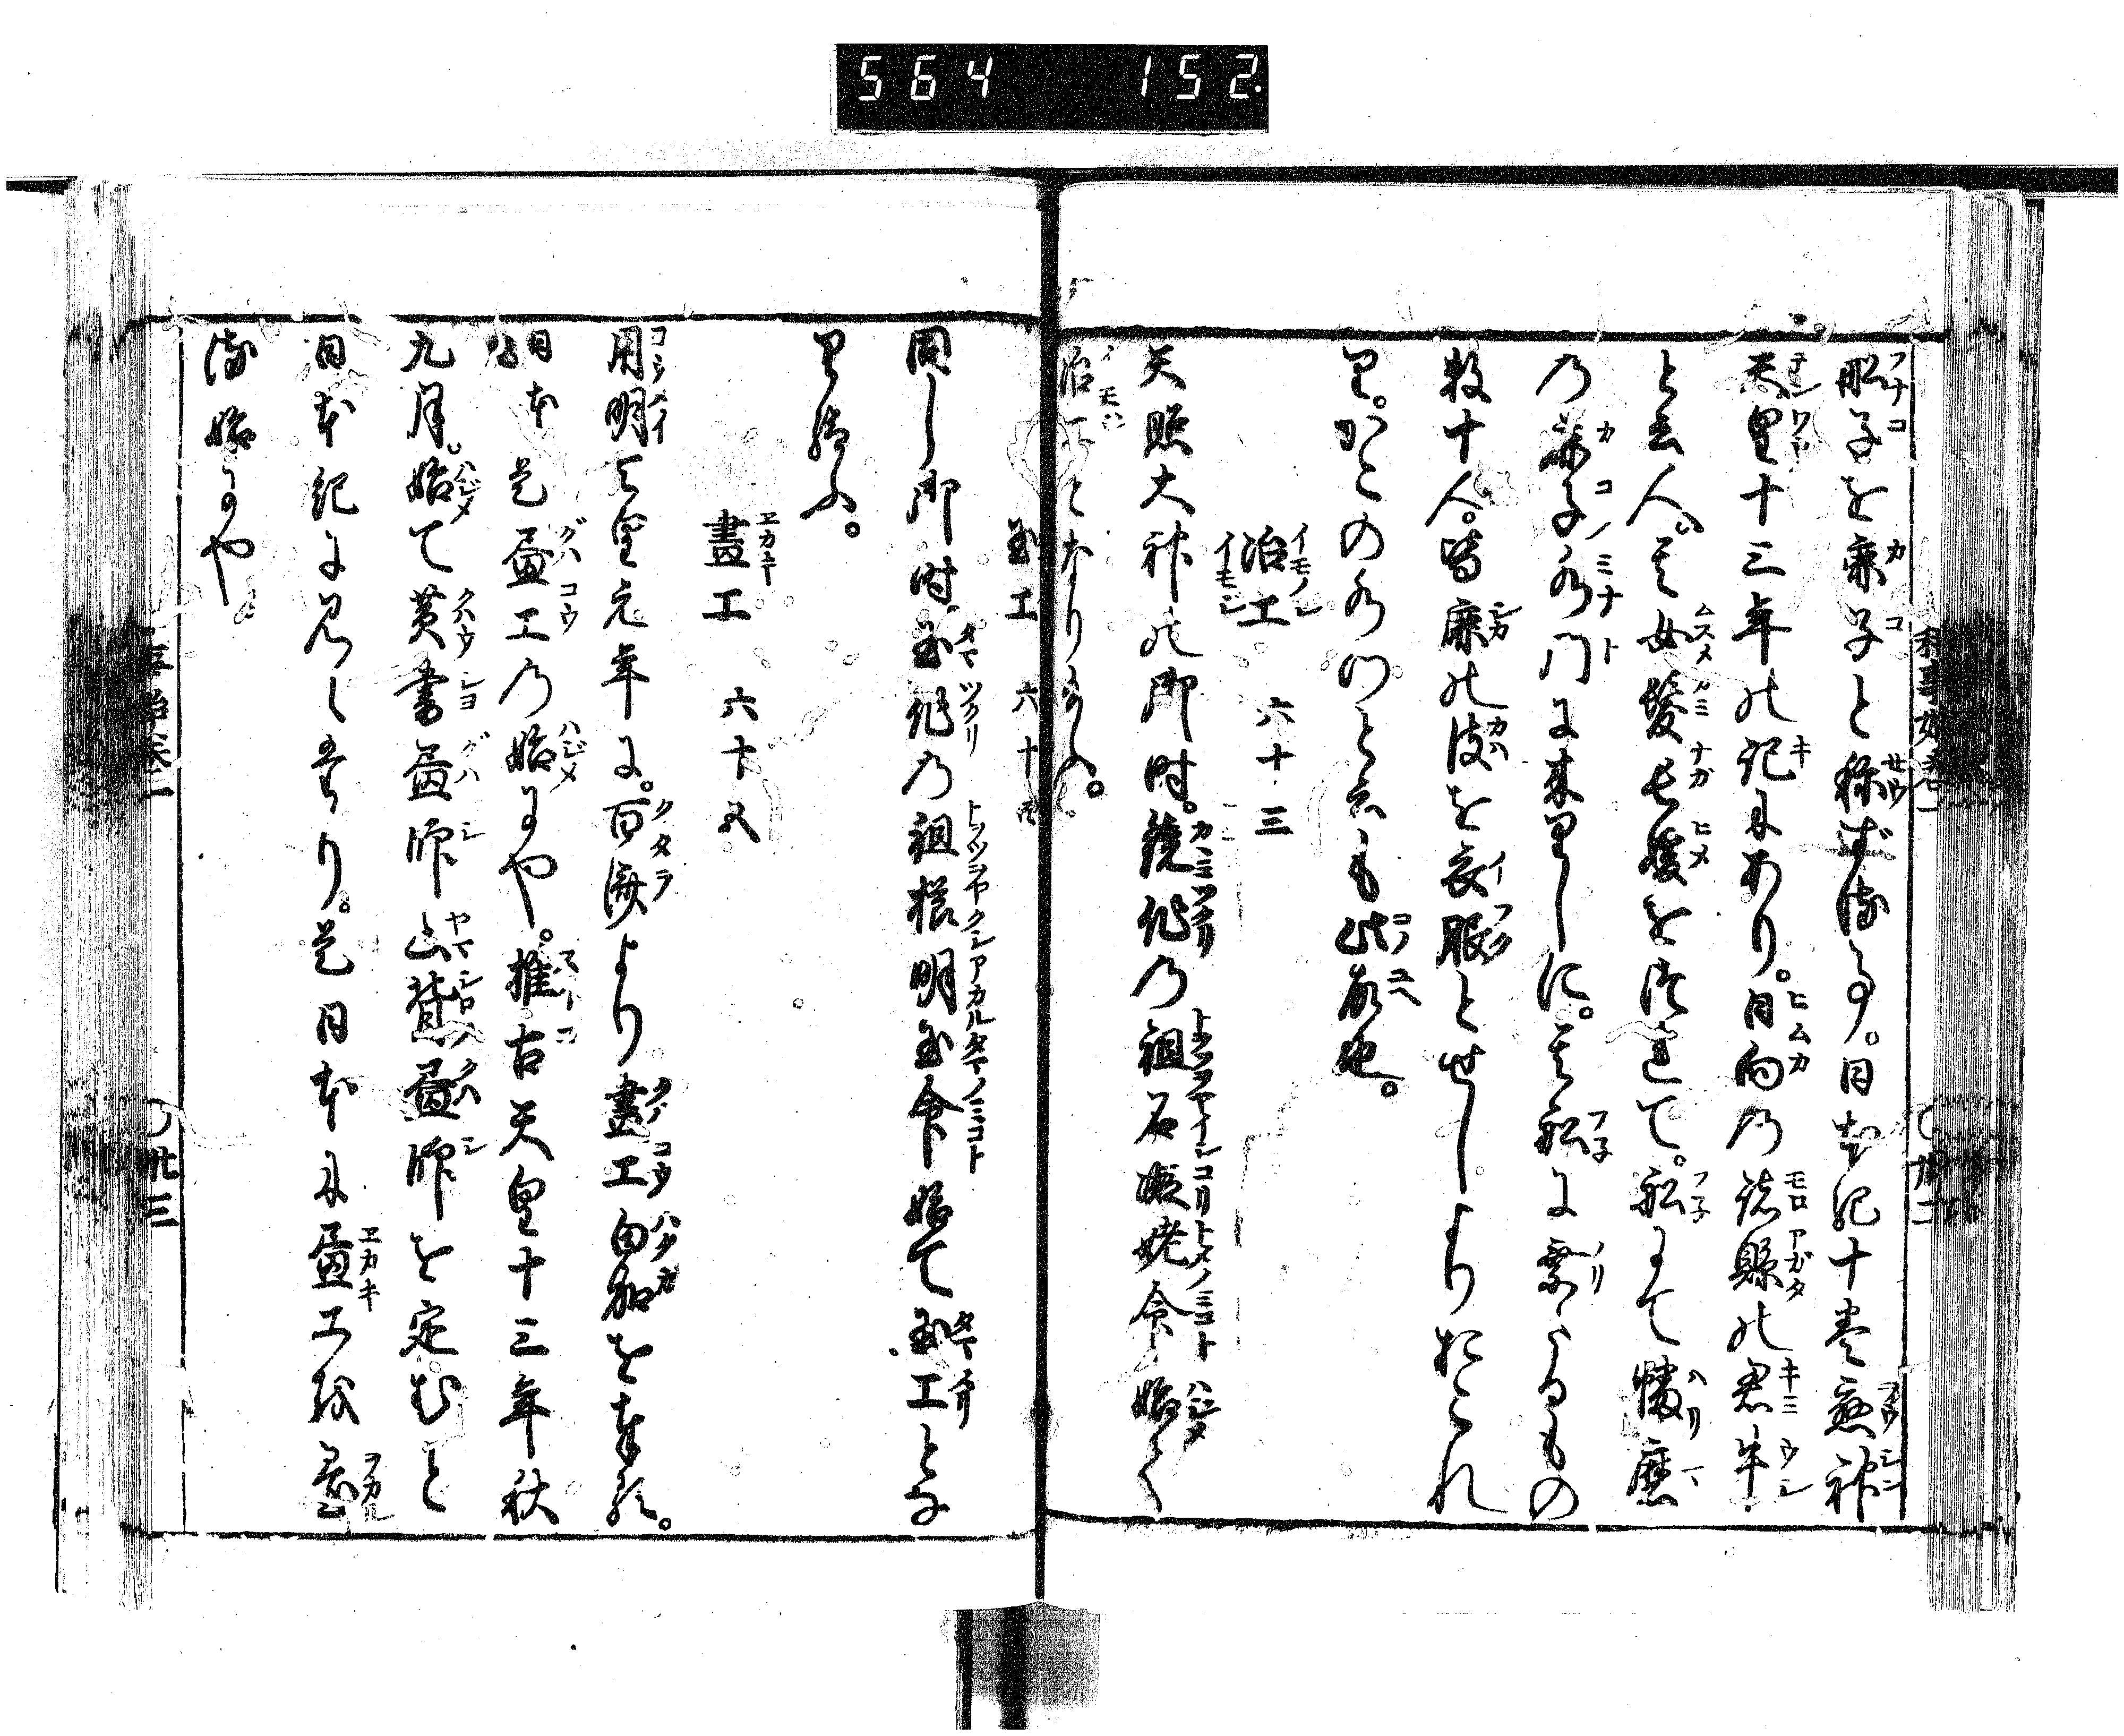 564 152
舩子を鹿子と称ずる事。日本紀十巻應神
天皇十三年の紀にあり。日向の諸縣の君牛
と云人。其女髪長媛をつれて。舩にて幡磨
の鹿子水門に来りしに。其舩に乗くるもの
数十人。皆鹿の皮を衣服とせしよりおこれ
り。かこの水門と云も此故也。
冶工 六十三
天照大神の御時。鏡作の祖石凝姥命始て
冶工となり給ふ。
玉工 六十四
同し御時。玉作の祖櫛明玉命始て玉工とな
り給ふ。
畫工 六十五
用明天皇元年に。百済より畫工白加を奉る。
日本是畫工の始にや。推古天皇十三年秋
九月。始て黄書畫師山背畫師を定むと
日本紀に見えたり。是日本に畫工を置
る始にや。
事始巻一 〇廿三